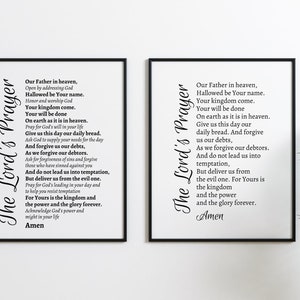 The Lord's Prayer
Our Father in heaven,
Open by addressing God
Hallowed be Your name.
Honor and worship God
Your kingdom come.
Your will be done
On earth as it is in heaven.
Pray for God's will in your life
Give us this day our daily bread.
Ask God to supply your needs for the day
And forgive us our debts,
As we forgive our debtors.
Ask for forgiveness of sins and forgive
those who have sinned against you
And do not lead us into temptation,
But deliver us from the evil one.
Pray for God's leading in your day and
to help you resist temptation
For Yours is the kingdom and
the power and the glory forever.
Acknowledge God's power and
might in your life
Amen
The Lord's Prayer
Our Father in heaven,
Hallowed be Your name.
Your kingdom come.
Your will be done
On earth as it is in heaven.
Give us this day our
daily bread. And forgive
us our debts,
As we forgive our debtors.
And do not lead us into
temptation,
But deliver us from
the evil one. For Yours is
the kingdom
and the power
and the glory forever.
Amen